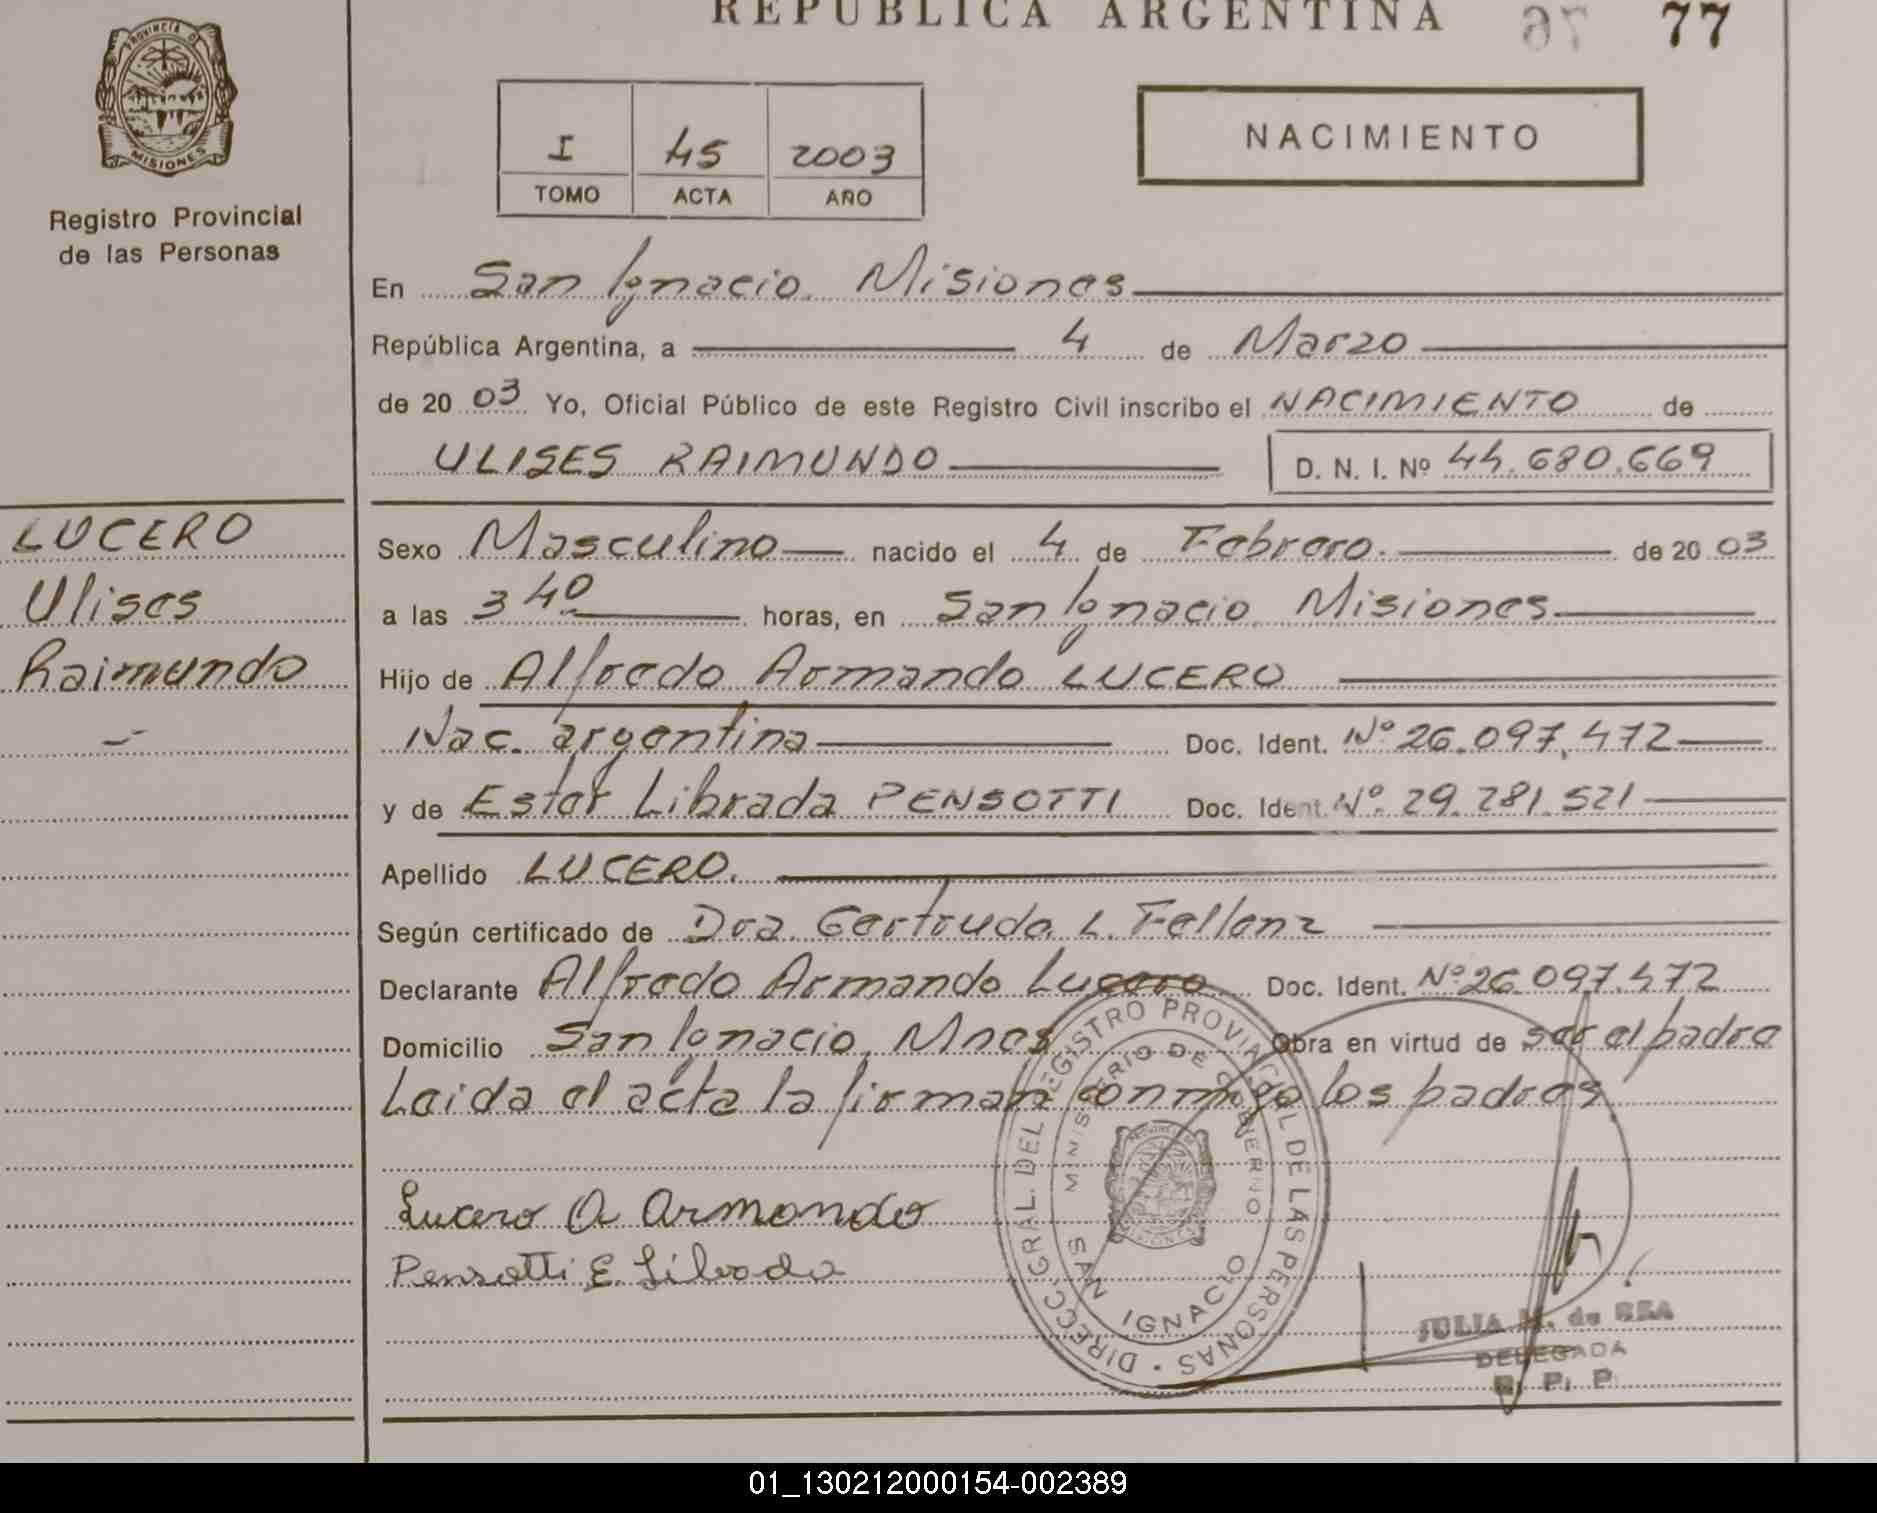 REPUBLICA ARGENTINA 77
PROVINCIA DE MISIONES
Registro Provincial
de las Personas
I 45 2003
TOMO ACTA AÑO
NACIMIENTO
En San Ignacio, Misiones
República Argentina, a 4 de Marzo
de 20 03 Yo, Oficial Público de este Registro Civil inscribo el NACIMIENTO de
ULISES RAIMUNDO D. N. I. Nº 44.680.669
LUCERO
Ulises
Raimundo
Sexo Masculino nacido el 4 de Febrero. de 20 03
a las 3 40 horas, en San Ignacio, Misiones
Hijo de Alfredo Armando LUCERO
Nac. argentina Doc. Ident. Nº 26.097.472
y de Ester Librada PENSOTTI Doc. Ident. Nº. 29.281.521
Apellido LUCERO.
Según certificado de Dra. Gertruda L. Fellenz
Declarante Alfredo Armando Lucero Doc. Ident. Nº 26.097.472
Domicilio San Ignacio, Mnes Obra en virtud de ser el padre
Leida el acta la firman conmigo los padres.
Lucero A Armando
Pensotti E. Librada
DIRECC. GRAL. DEL REGISTRO PROVINCIAL DE LAS PERSONAS
MINISTERIO DE GOBIERNO
SAN IGNACIO
JULIA M. de
DELEGADA
R. P. P.
01_130212000154-002389